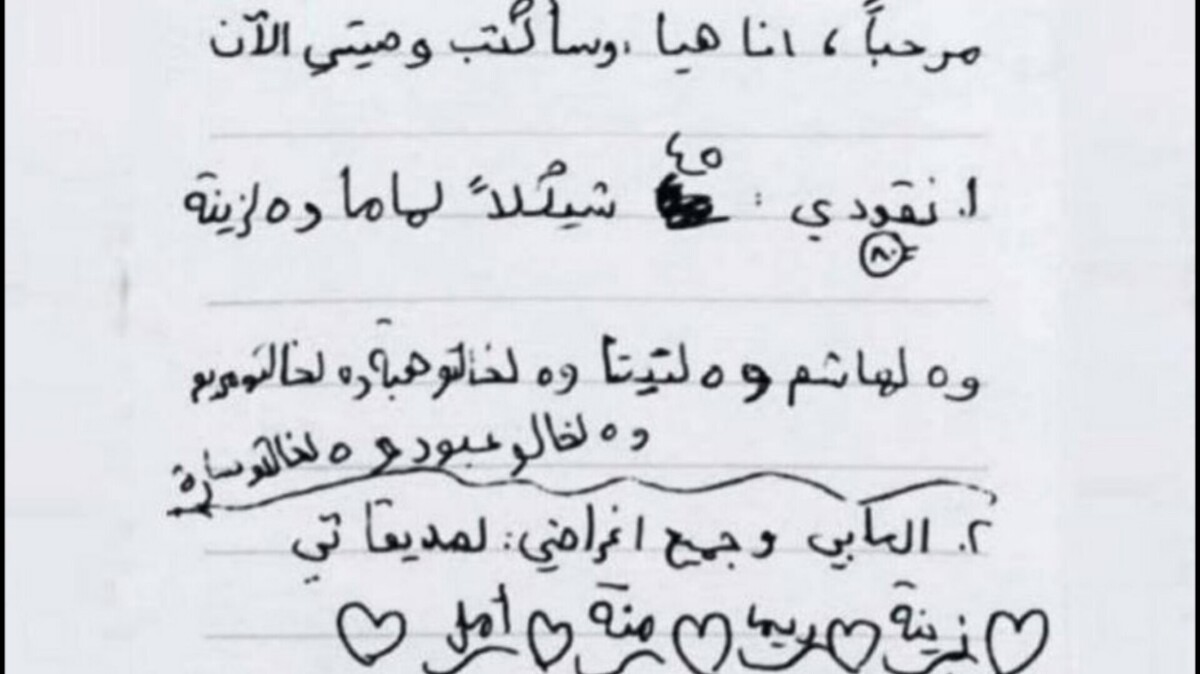 مرحباً، انا هيا، وسأكتب وصيتي الآن
١. نقودي: ٤٥ شيكلاً لماما و٥ لزينة
٨٠
و٥ لهاشم و٥ لتيتا و٥ لخالتو هبة و٥ لخالتو مريم
و٥ لخالو عبود و٥ لخالتو سارة
٢. العابي وجميع اغراضي: لصديقاتي
زينة ريما منة أمل